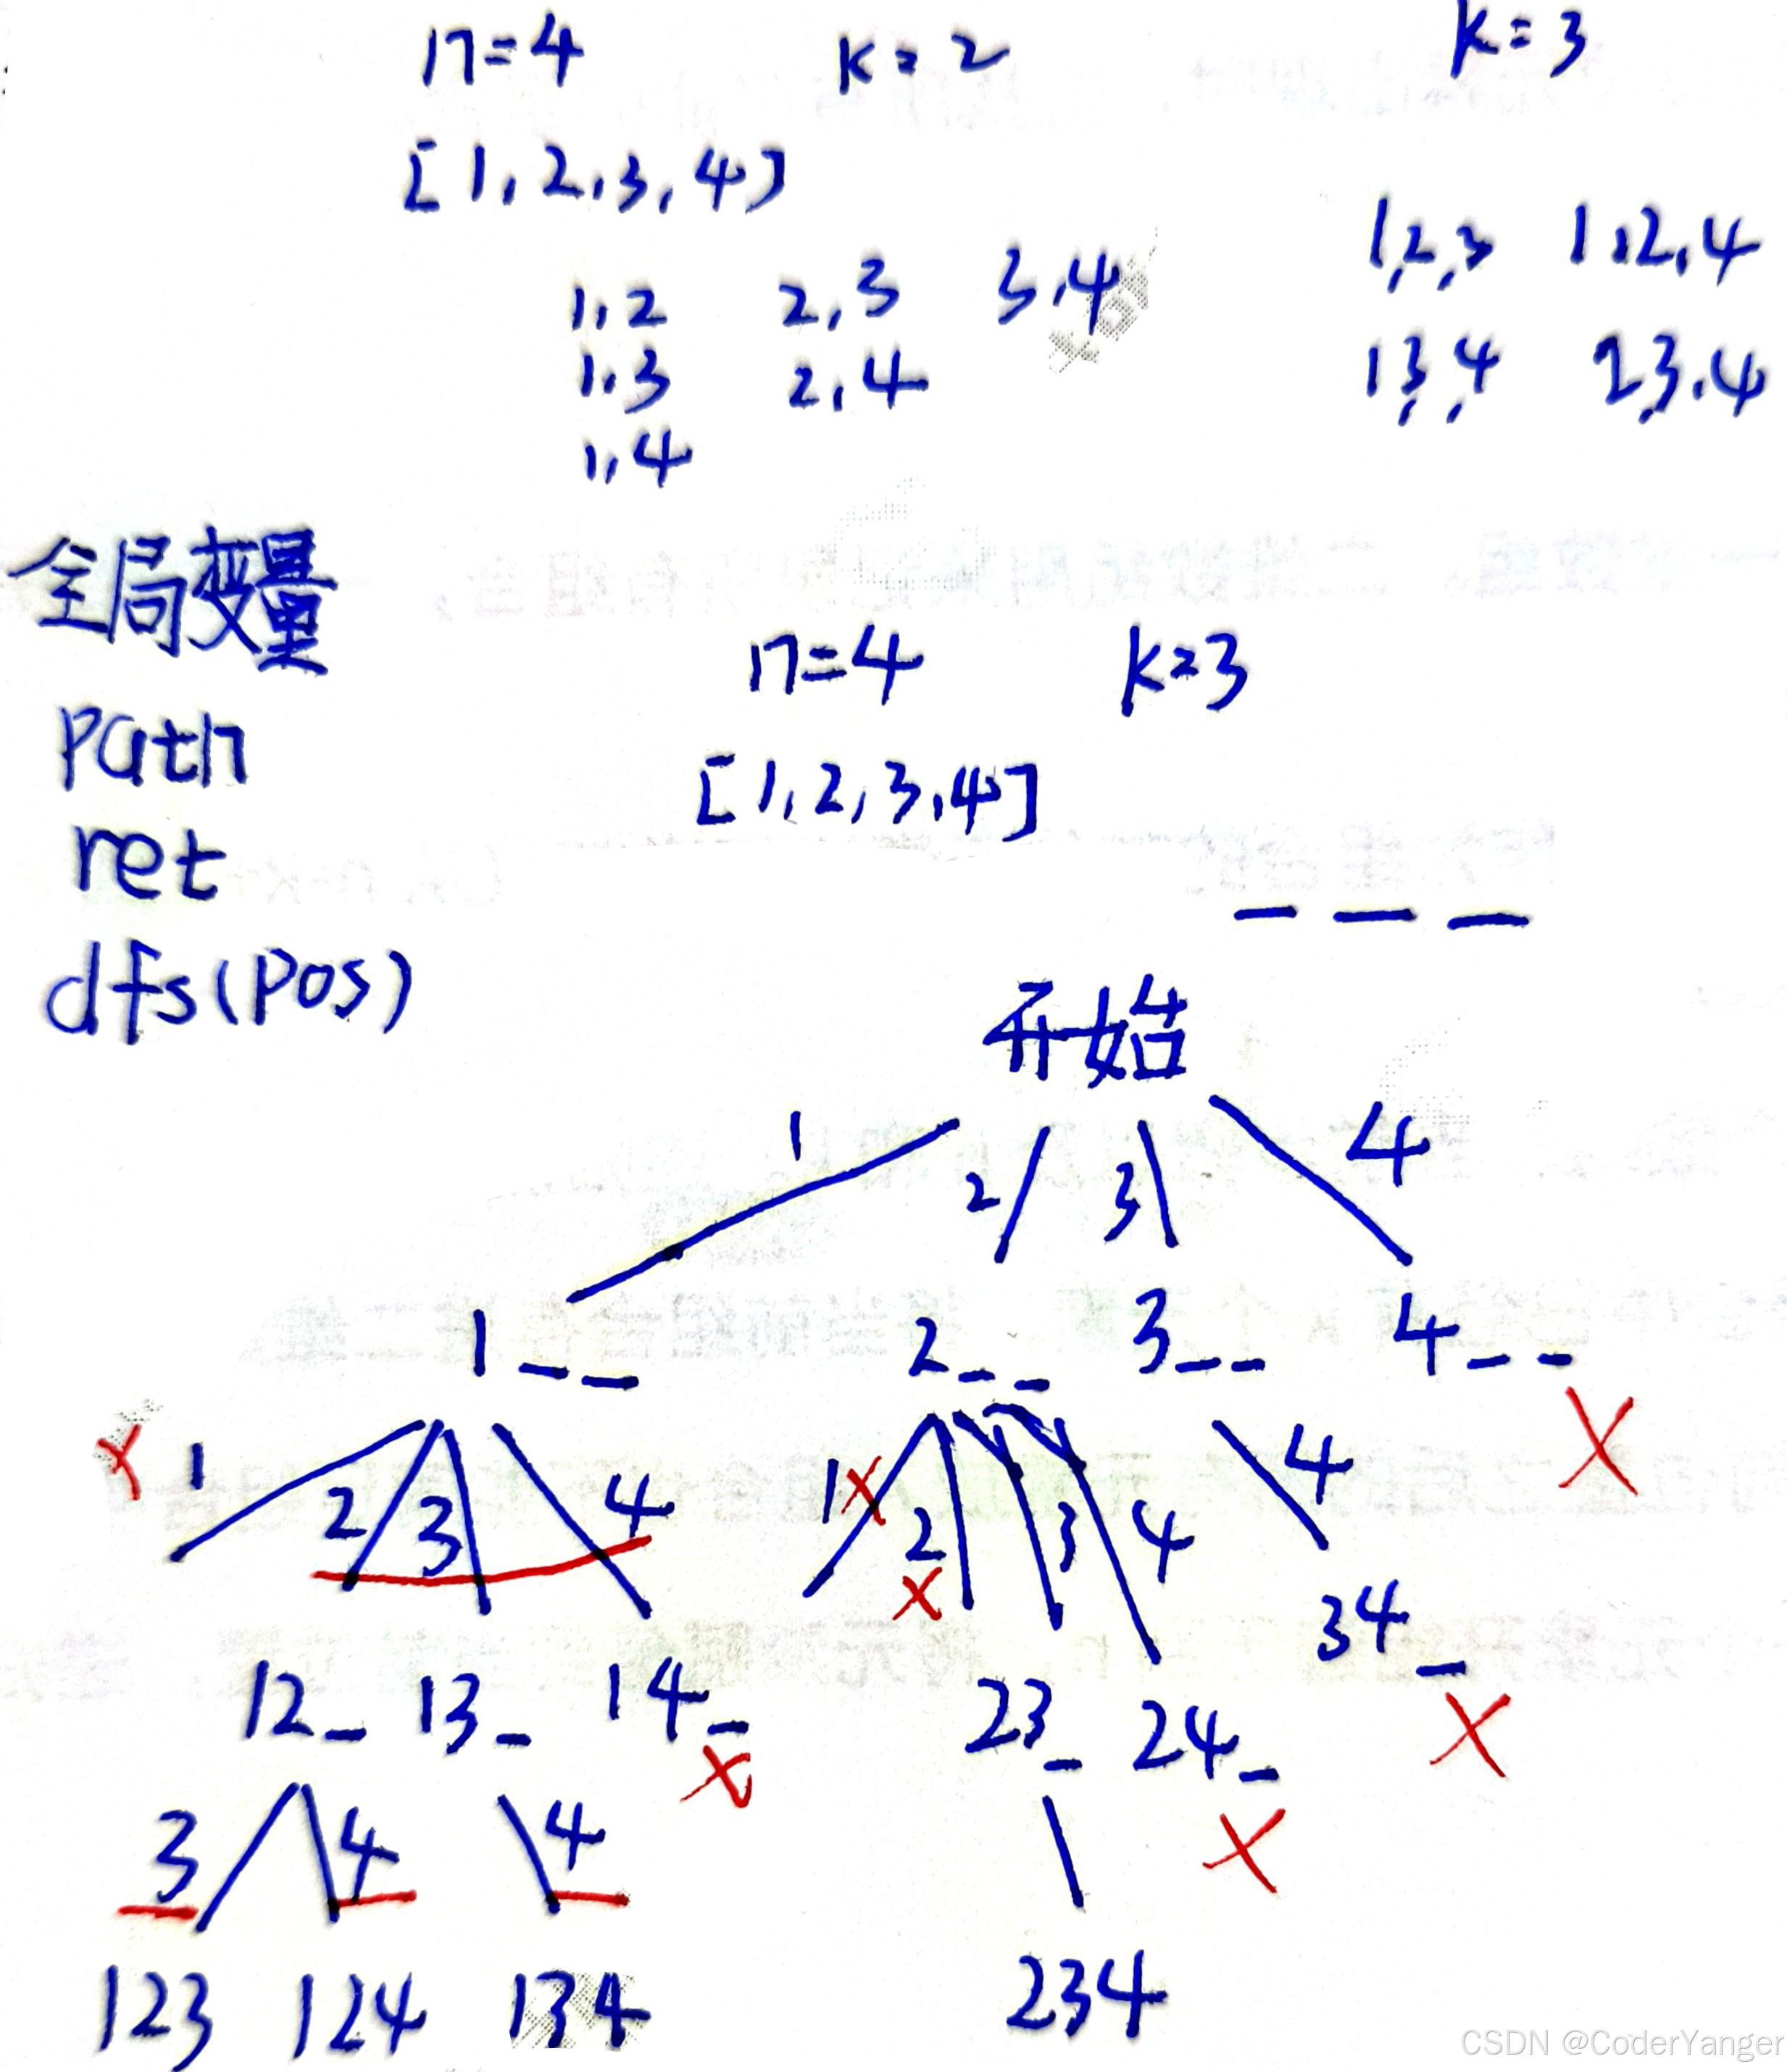 n=4 k=2 k=3
[1,2,3,4]
1,2 2,3 3,4 1,2,3 1,2,4
1,3 2,4 1,3,4 2,3,4
1,4
全局变量
n=4 k=3
path
[1,2,3,4]
ret
_ _ _
dfs(pos)
开始
1 2 3 4
1 _ _ 2 _ _ 3 _ _ 4 _ _
x 1 2 3 4 1 x 2 x 3 4 4 x
34 _
12 _ 13 _ 14 _ 23 _ 24 _ x
x
3 4 4 x
123 124 134 234
CSDN @CoderYanger